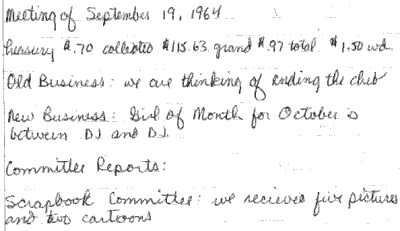 Meeting of September 19, 1964
Treasury $.70 collected $115.63 grand $.97 total $1.50 wd.
Old Business: we are thinking of ending the club
New Business: Girl of Month for October is
between DJ and D.J.
Committee Reports:
Scrapbook Committee: we recieved five pictures
and two cartoons